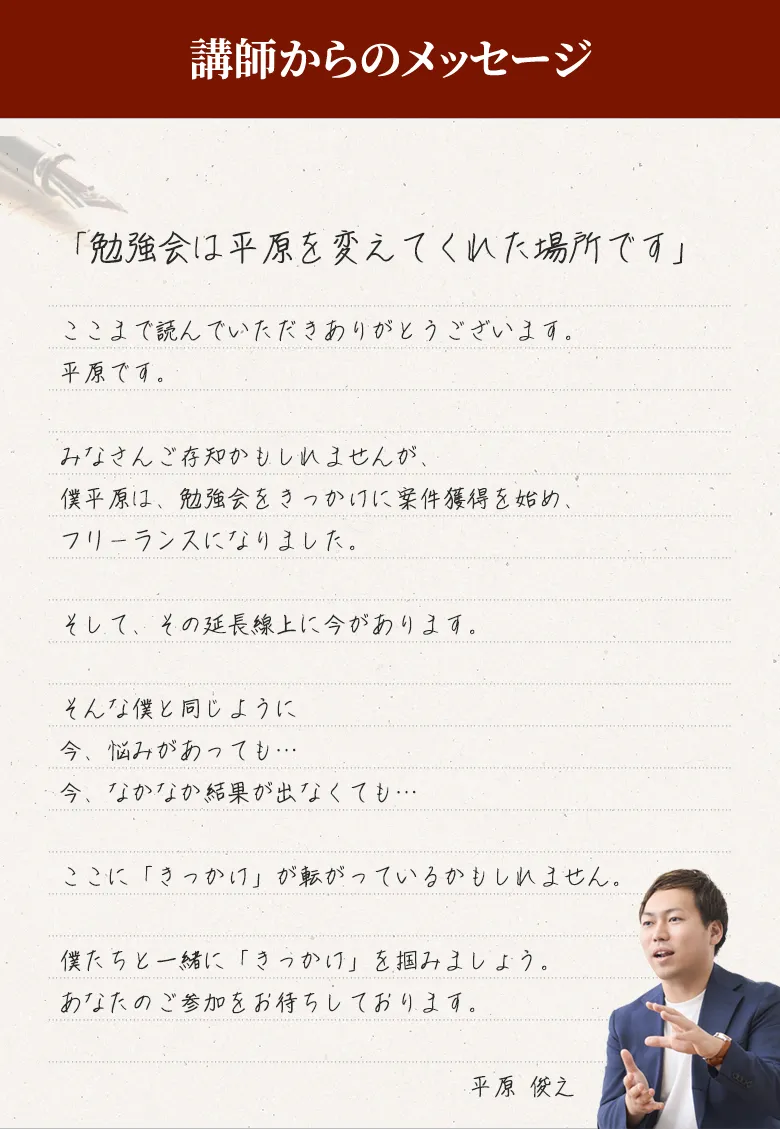 講師からのメッセージ
「勉強会は平原を変えてくれた場所です」
ここまで読んでいただきありがとうございます。
平原です。
みなさんご存知かもしれませんが、
僕平原は、勉強会をきっかけに案件獲得を始め、
フリーランスになりました。
そして、その延長線上に今があります。
そんな僕と同じように
今、悩みがあっても…
今、なかなか結果が出なくても…
ここに「きっかけ」が転がっているかもしれません。
僕たちと一緒に「きっかけ」を掴みましょう。
あなたのご参加をお待ちしております。
平原 俊之